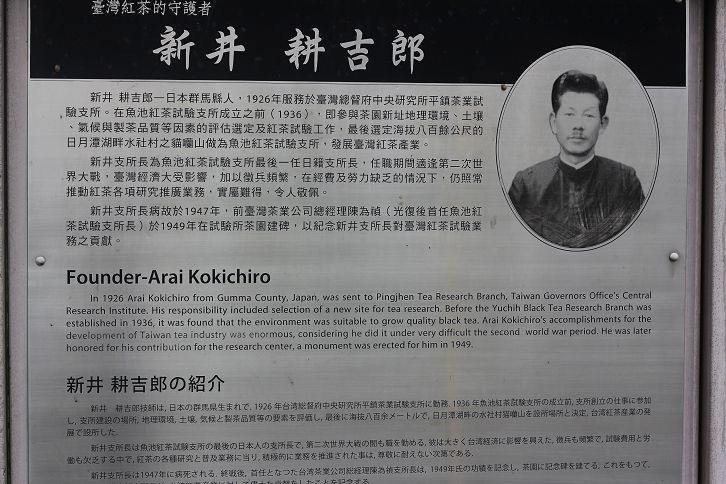 臺灣紅茶的守護者
新井 耕吉郎
新井 耕吉郎—日本群馬縣人，1926年服務於臺灣總督府中央研究所平鎮茶業試
驗支所。在魚池紅茶試驗支所成立之前（1936），即參與茶園新址地理環境、土壤
、氣候與製茶品質等因素的評估選定及紅茶試驗工作，最後選定海拔八百餘公尺的
日月潭湖畔水社村之貓囒山做為魚池紅茶試驗支所，發展臺灣紅茶產業。
新井支所長為魚池紅茶試驗支所最後一任日籍支所長，任職期間適逢第二次世
界大戰，臺灣經濟大受影響，加以徵兵頻繁，在經費及勞力缺乏的情況下，仍照常
推動紅茶各項研究推廣業務，實屬難得，令人敬佩。
新井支所長病故於1947年，前臺灣茶業公司總經理陳為禎（光復後首任魚池紅
茶試驗支所長）於1949年在試驗所茶園建碑，以紀念新井支所長對臺灣紅茶試驗業
務之貢獻。
Founder-Arai Kokichiro
In 1926 Arai Kokichiro from Gumma County, Japan, was sent to Pingjhen Tea Research Branch, Taiwan Governors Office's Central
Research Institute. His responsibility included selection of a new site for tea research. Before the Yuchih Black Tea Research Branch was
established in 1936, it was found that the environment was suitable to grow quality black tea. Arai Kokichiro's accomplishments for the
development of Taiwan tea industry was enormous, considering he did it under very difficult the second world war period. He was later
honored for his contribution for the research center, a monument was erected for him in 1949.
新井 耕吉郎の紹介
新井 耕吉郎技師は, 日本の群馬県生まれで, 1926 年台湾総督府中央研究所平鎮茶業試験支所に勤務. 1936 年魚池紅茶試験支所の成立前, 支所創立の仕事に参加
し, 支所建設の場所, 地理環境, 土壌, 気候と製茶品質等の要素を評価し, 最後に海抜八百余メートルで, 日月潭湖畔の水社村猫囒山を設所場所と決定, 台湾紅茶産業の発
展で設所した.
新井支所長は魚池紅茶試験支所の最後の日本人の支所長で, 第二次世界大戦の間も職を勤める, 彼は大きく台湾経済に影響を與えた, 徴兵も頻繁で, 試験費用と労
働も欠乏する中で, 紅茶の各種研究と普及業務に当り, 積極的に業務を推進された事は, 尊敬に耐えない次第である.
新井支所長は1947年に病死される. 終戦後, 首任となつた台湾茶業公司総経理陳為禎支所長は, 1949年氏の功績を記念し, 茶園に記念碑を建てる. これをもつて,